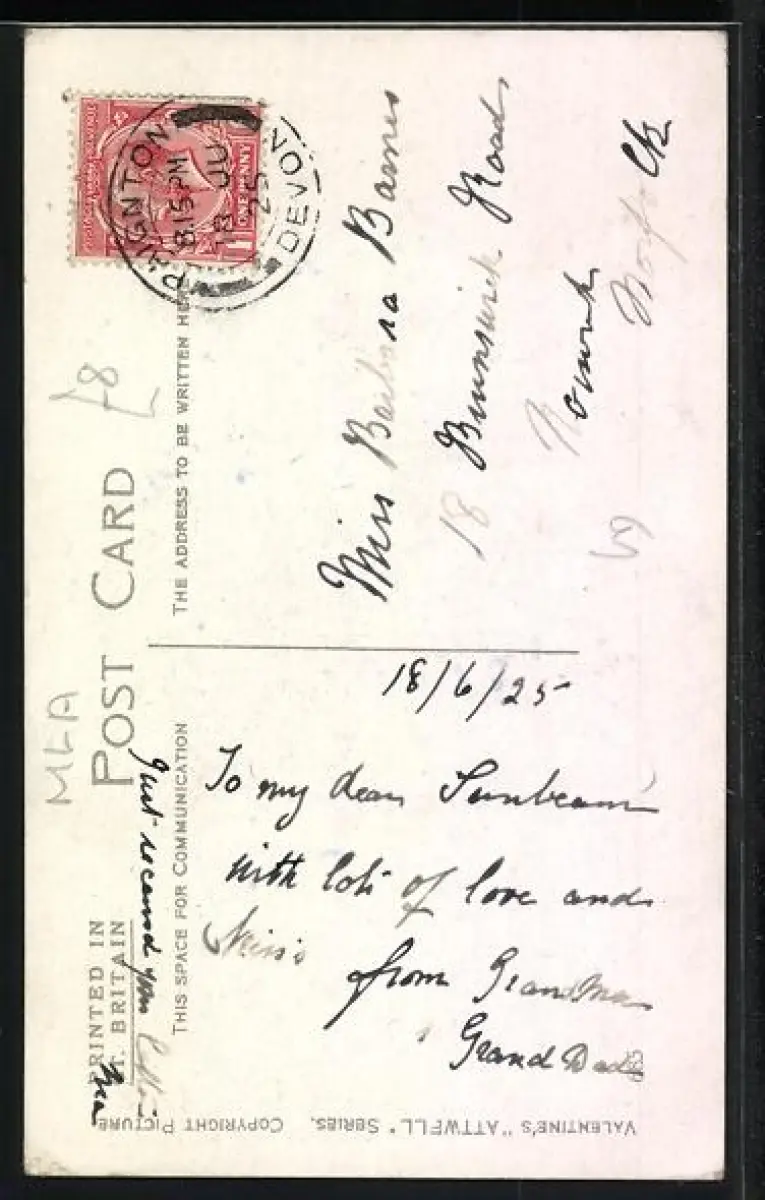 POST CARD
THE ADDRESS TO BE WRITTEN HERE
THIS SPACE FOR COMMUNICATION
PRINTED IN
GT. BRITAIN
PAIGNTON
8.15 PM
18 JU
25
DEVON
ONE PENNY
£8
MLA
Miss Barbara Barnes
18 Brunswick Road
Norwich
Norfolk
18/6/25
To my dear Sunbeam
with lots of love and
kisses
from Grandma
Grand Dad
Just received your letter
VALENTINE'S "ATTWELL" SERIES. COPYRIGHT PICTURE